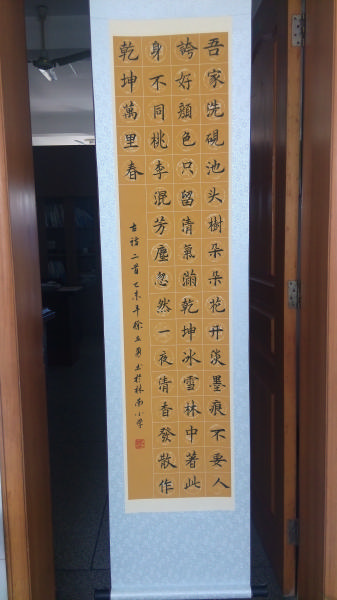 吾家洗硯池头樹朵朵花开淡墨痕不要人
誇好顏色只留清氣滿乾坤冰雪林中著此
身不同桃李混芳塵忽然一夜清香發散作
乾坤萬里春
古诗二首乙未年徐书於林南小学